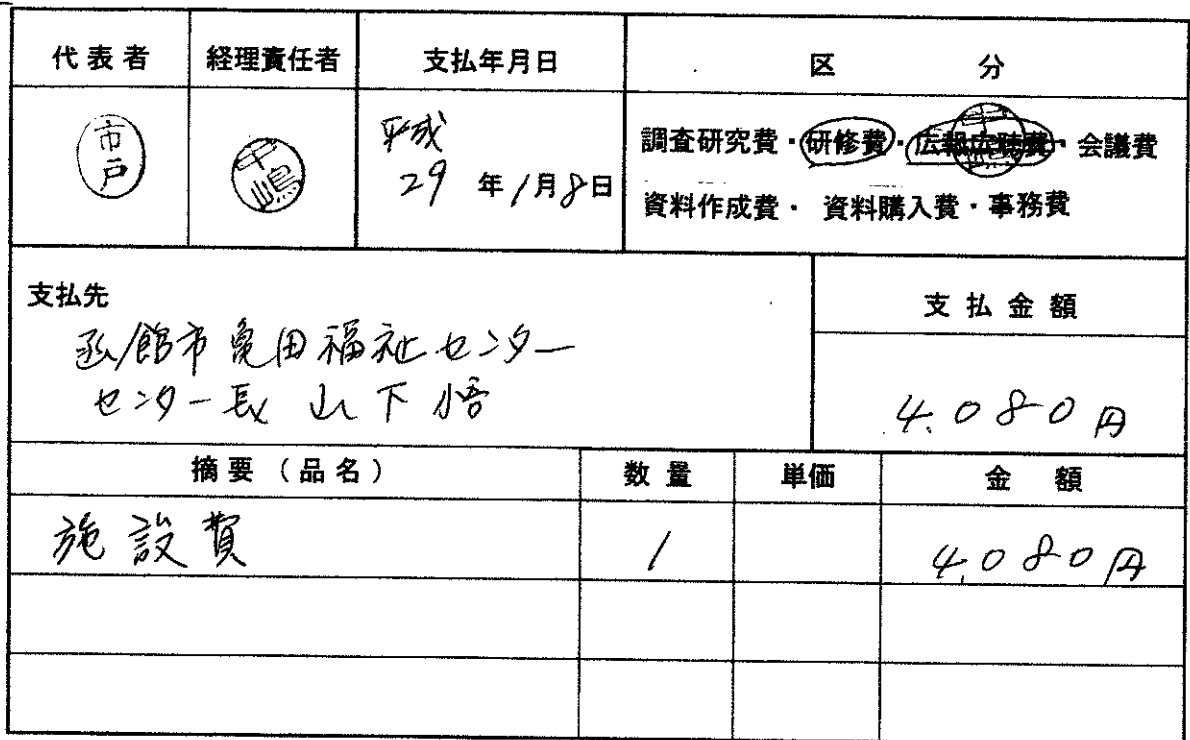 代表者 経理責任者 支払年月日 区 分
市戸 千嶋 平成
29 年1月8日
調査研究費・研修費・広報広聴費・会議費
資料作成費・ 資料購入費・事務費
支払先 支払金額
函館市亀田福祉センター
センター長 山下 悟
4,080円
摘要(品名) 数量 単価 金 額
施設費 1 4,080円